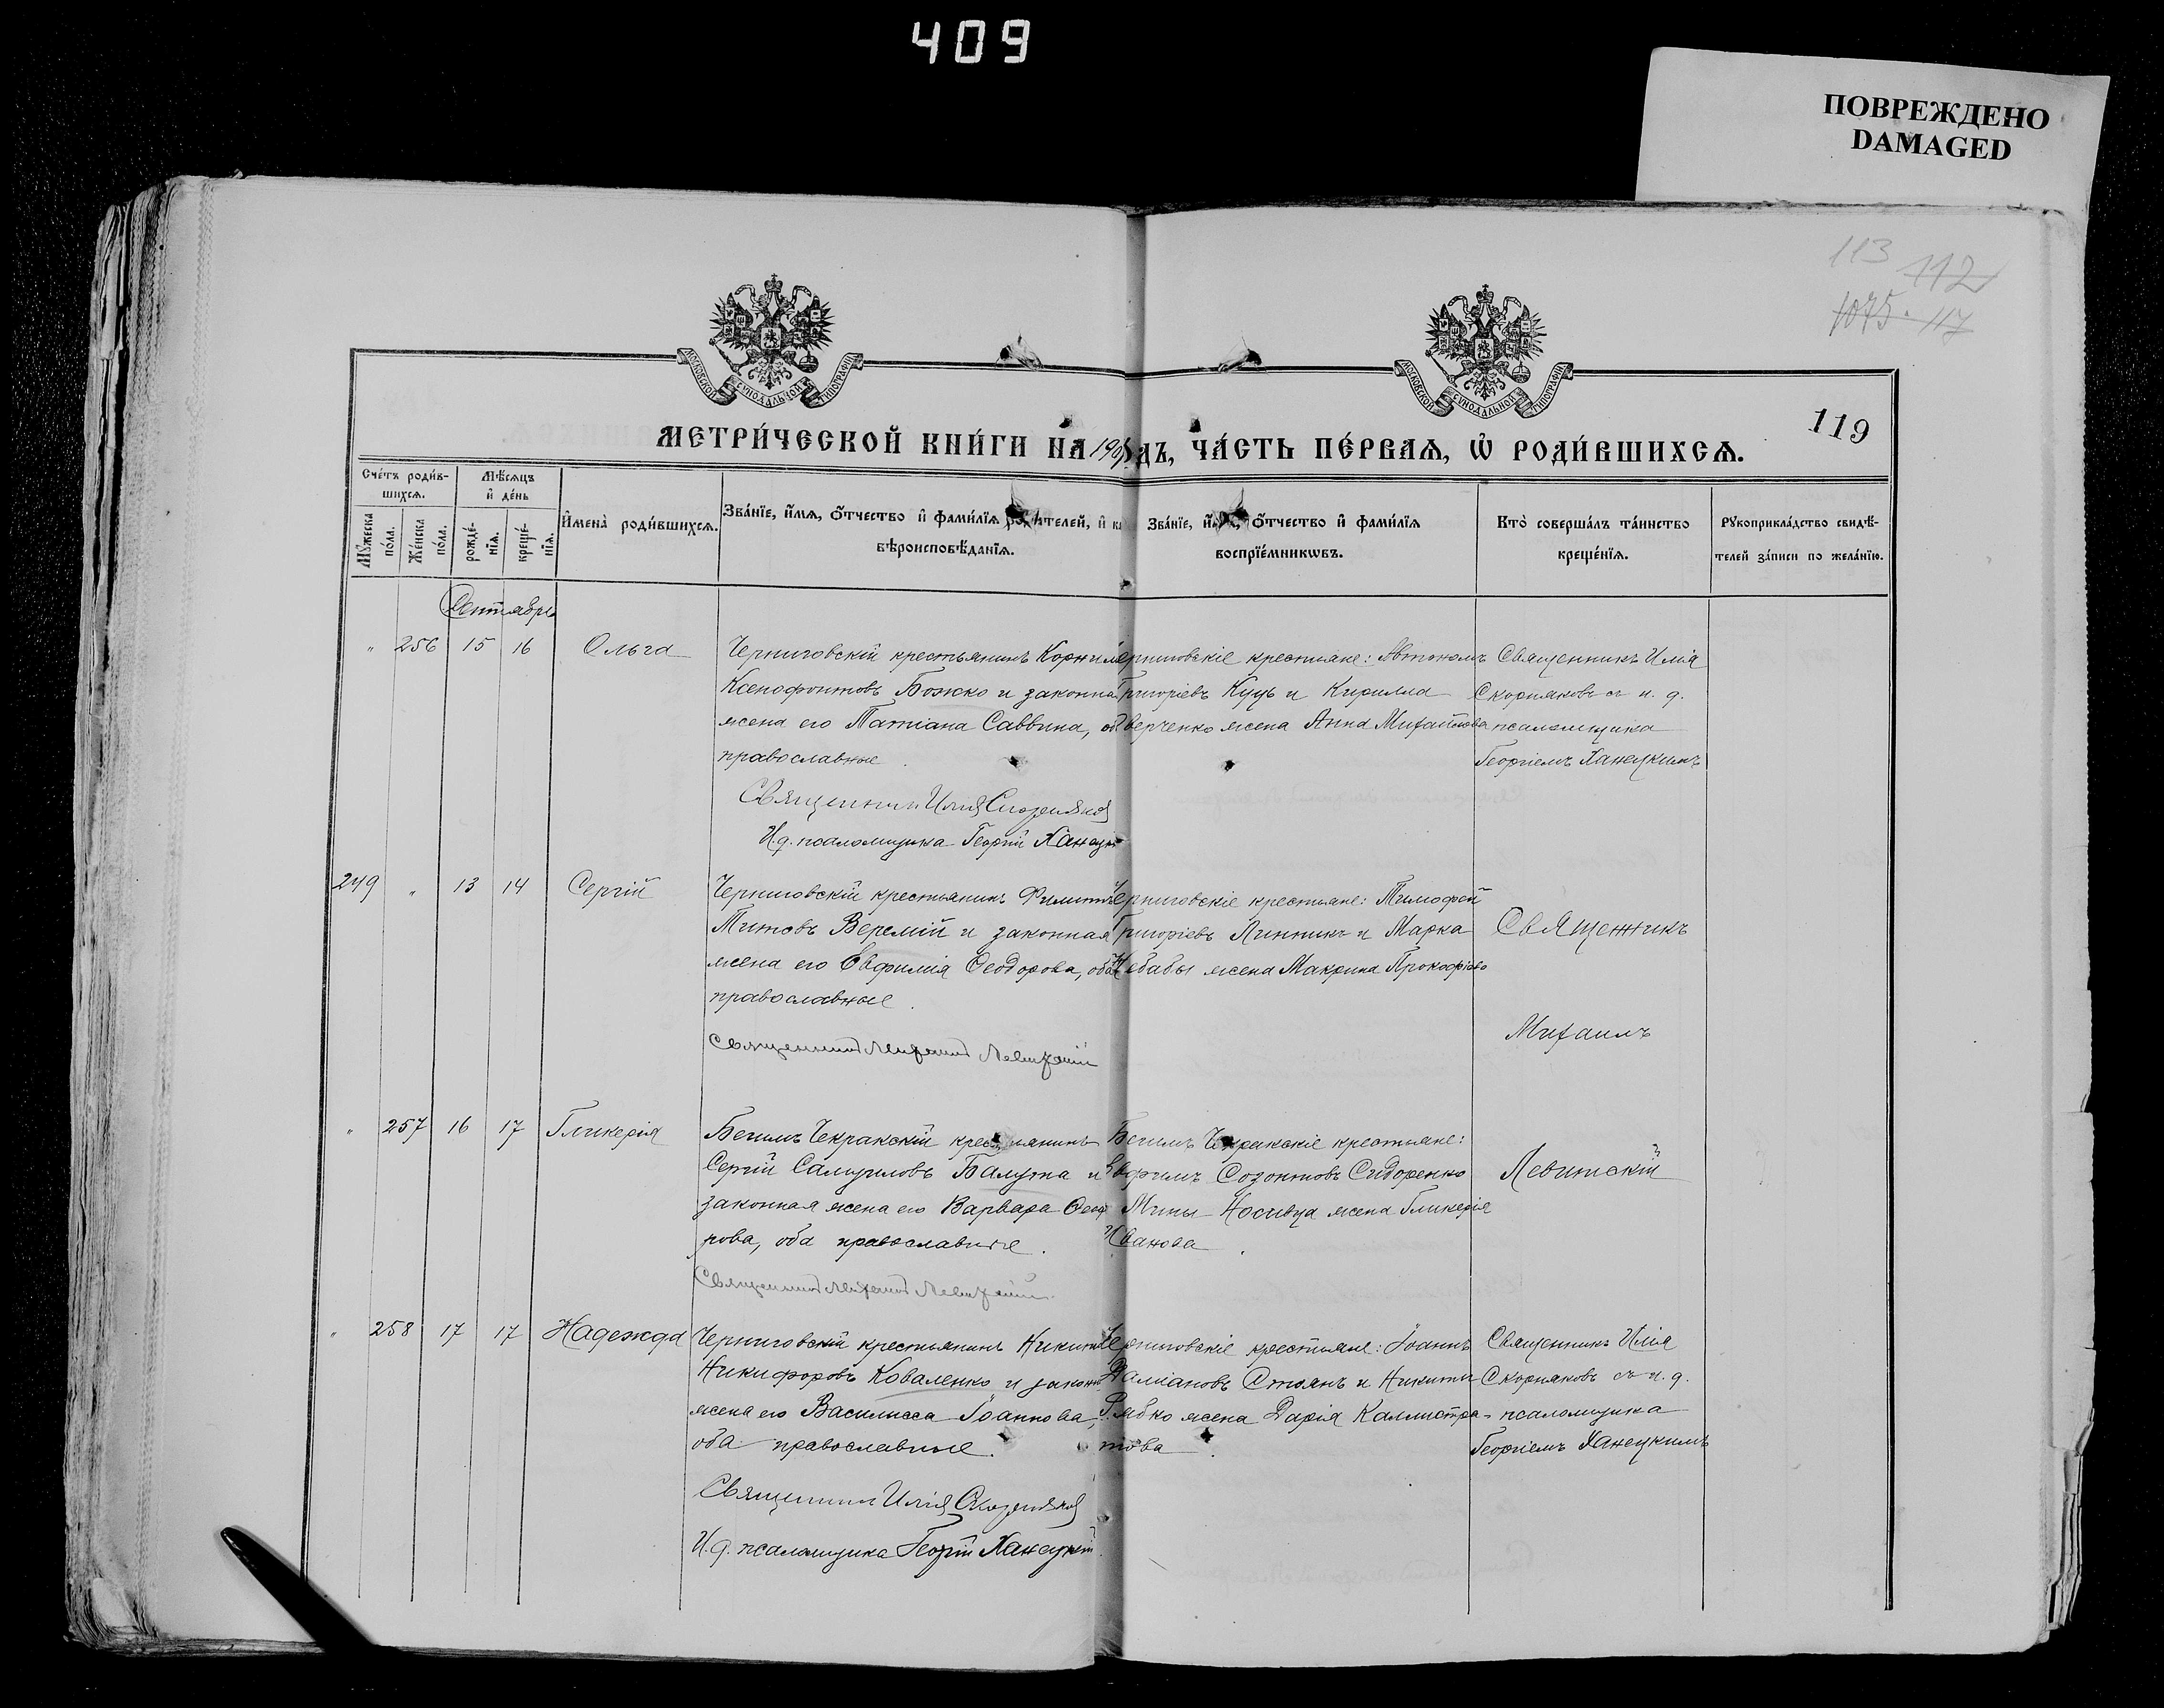 409
ПОВРЕЖДЕНО
DAMAGED
113
112
1075. 117
МОСКОВСКОЙ СѴНОДАЛЬНОЙ ТИПОГРАФІИ
МОСКОВСКОЙ СѴНОДАЛЬНОЙ ТИПОГРАФІИ
119
МЕТРИ́ЧЕСКОЙ КНИ́ГИ НА дъ, ЧА́СТЬ ПЕ́РВАѦ, Ѡ҆ РОДИ́ВШИХСѦ.
Сче́тъ роди́в-
шихсѧ.
Мѣ́сѧцъ
и҆ де́нь
Мꙋ́жеска по́ла.
Же́нска по́ла.
рожде́-
нїѧ.
креще́-
нїѧ.
И҆мена̀ роди́вшихсѧ.
Зва́нїе, и҆́мѧ, ѻ҆́тчество и҆ фами́лїѧ роди́телей, и҆
вѣроисповѣ́данїѧ.
Зва́нїе, и҆́мѧ, ѻ҆́тчество и҆ фами́лїѧ
воспрїе́мникѡвъ.
Кто̀ соверша́лъ та́инство
креще́нїѧ.
Рꙋкоприкла́дство свидѣ́-
телей за́писи по жела́нїю.
Сентябрь
" 256 15 16 Ольга
Черниговскій крестьянинъ Корнил
Ксенофонтовъ Божко и законна
жена его Татіана Саввина, об
православные
Священник Илія Скорняков
И.д. псаломщика Георгій Ханецкі
Черниговскіе крестьяне: Автономъ
Григоріевъ Куць и Кирилла
верченко жена Анна Михайлова
Священникъ Илія
Скорняковъ съ и. д.
псаломщика
Георгіемъ Ханецкимъ
249 " 13 14 Сергій
Черниговскій крестьянинъ Филиппъ
Титовъ Веремій и законная
жена его Евфимія Ѳеодорова, оба
православные.
Священникъ Михаилъ Левитскій
Черниговскіе крестьяне: Тимофей
Григоріевъ Линникъ и Марка
Небабы жена Макрина Прокофіева
Священникъ
Михаилъ
Левитскій
" 257 16 17 Гликерія
Бегимъ Чекракскій крестьянинъ
Сергій Самуиловъ Балута и
законная жена его Варвара Ѳеод
рова, оба православные.
Священникъ Михаилъ Левитскій
Бегимъ Чекракскіе крестьяне:
Евфимъ Созонтовъ Сидоренко
Мины Носивца жена Гликерія
Иванова.
" 258 17 17 Надежда
Черниговскій крестьянинъ Никита
Никифоровъ Коваленко и законн.
жена его Василисса Іоаннова,
оба православные.
Священник Илія Скорняков
И.д. псаломщика Георгій Ханецкій.
Черниговскіе крестьяне: Іоаннъ
Даміановъ Стоянъ и Никиты
Рябко жена Дарія Каллистра-
това.
Священникъ Илія
Скорняковъ съ и. д.
псаломщика
Георгіемъ Ханецкимъ